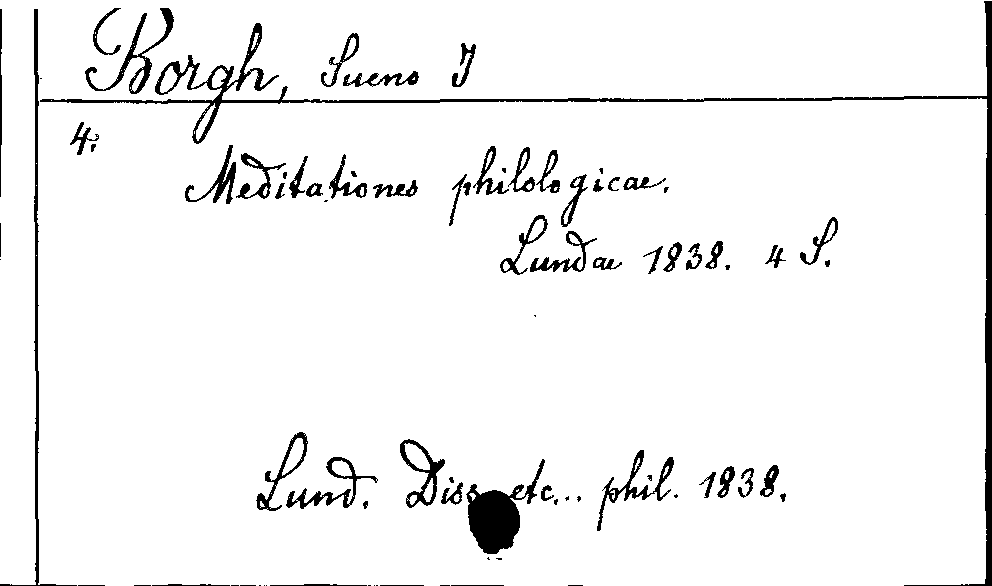 Borgh, Sueno J
4.
Meditationes philologicae.
Lundae 1838. 4 S.
Lund. Diss. etc... phil. 1838.